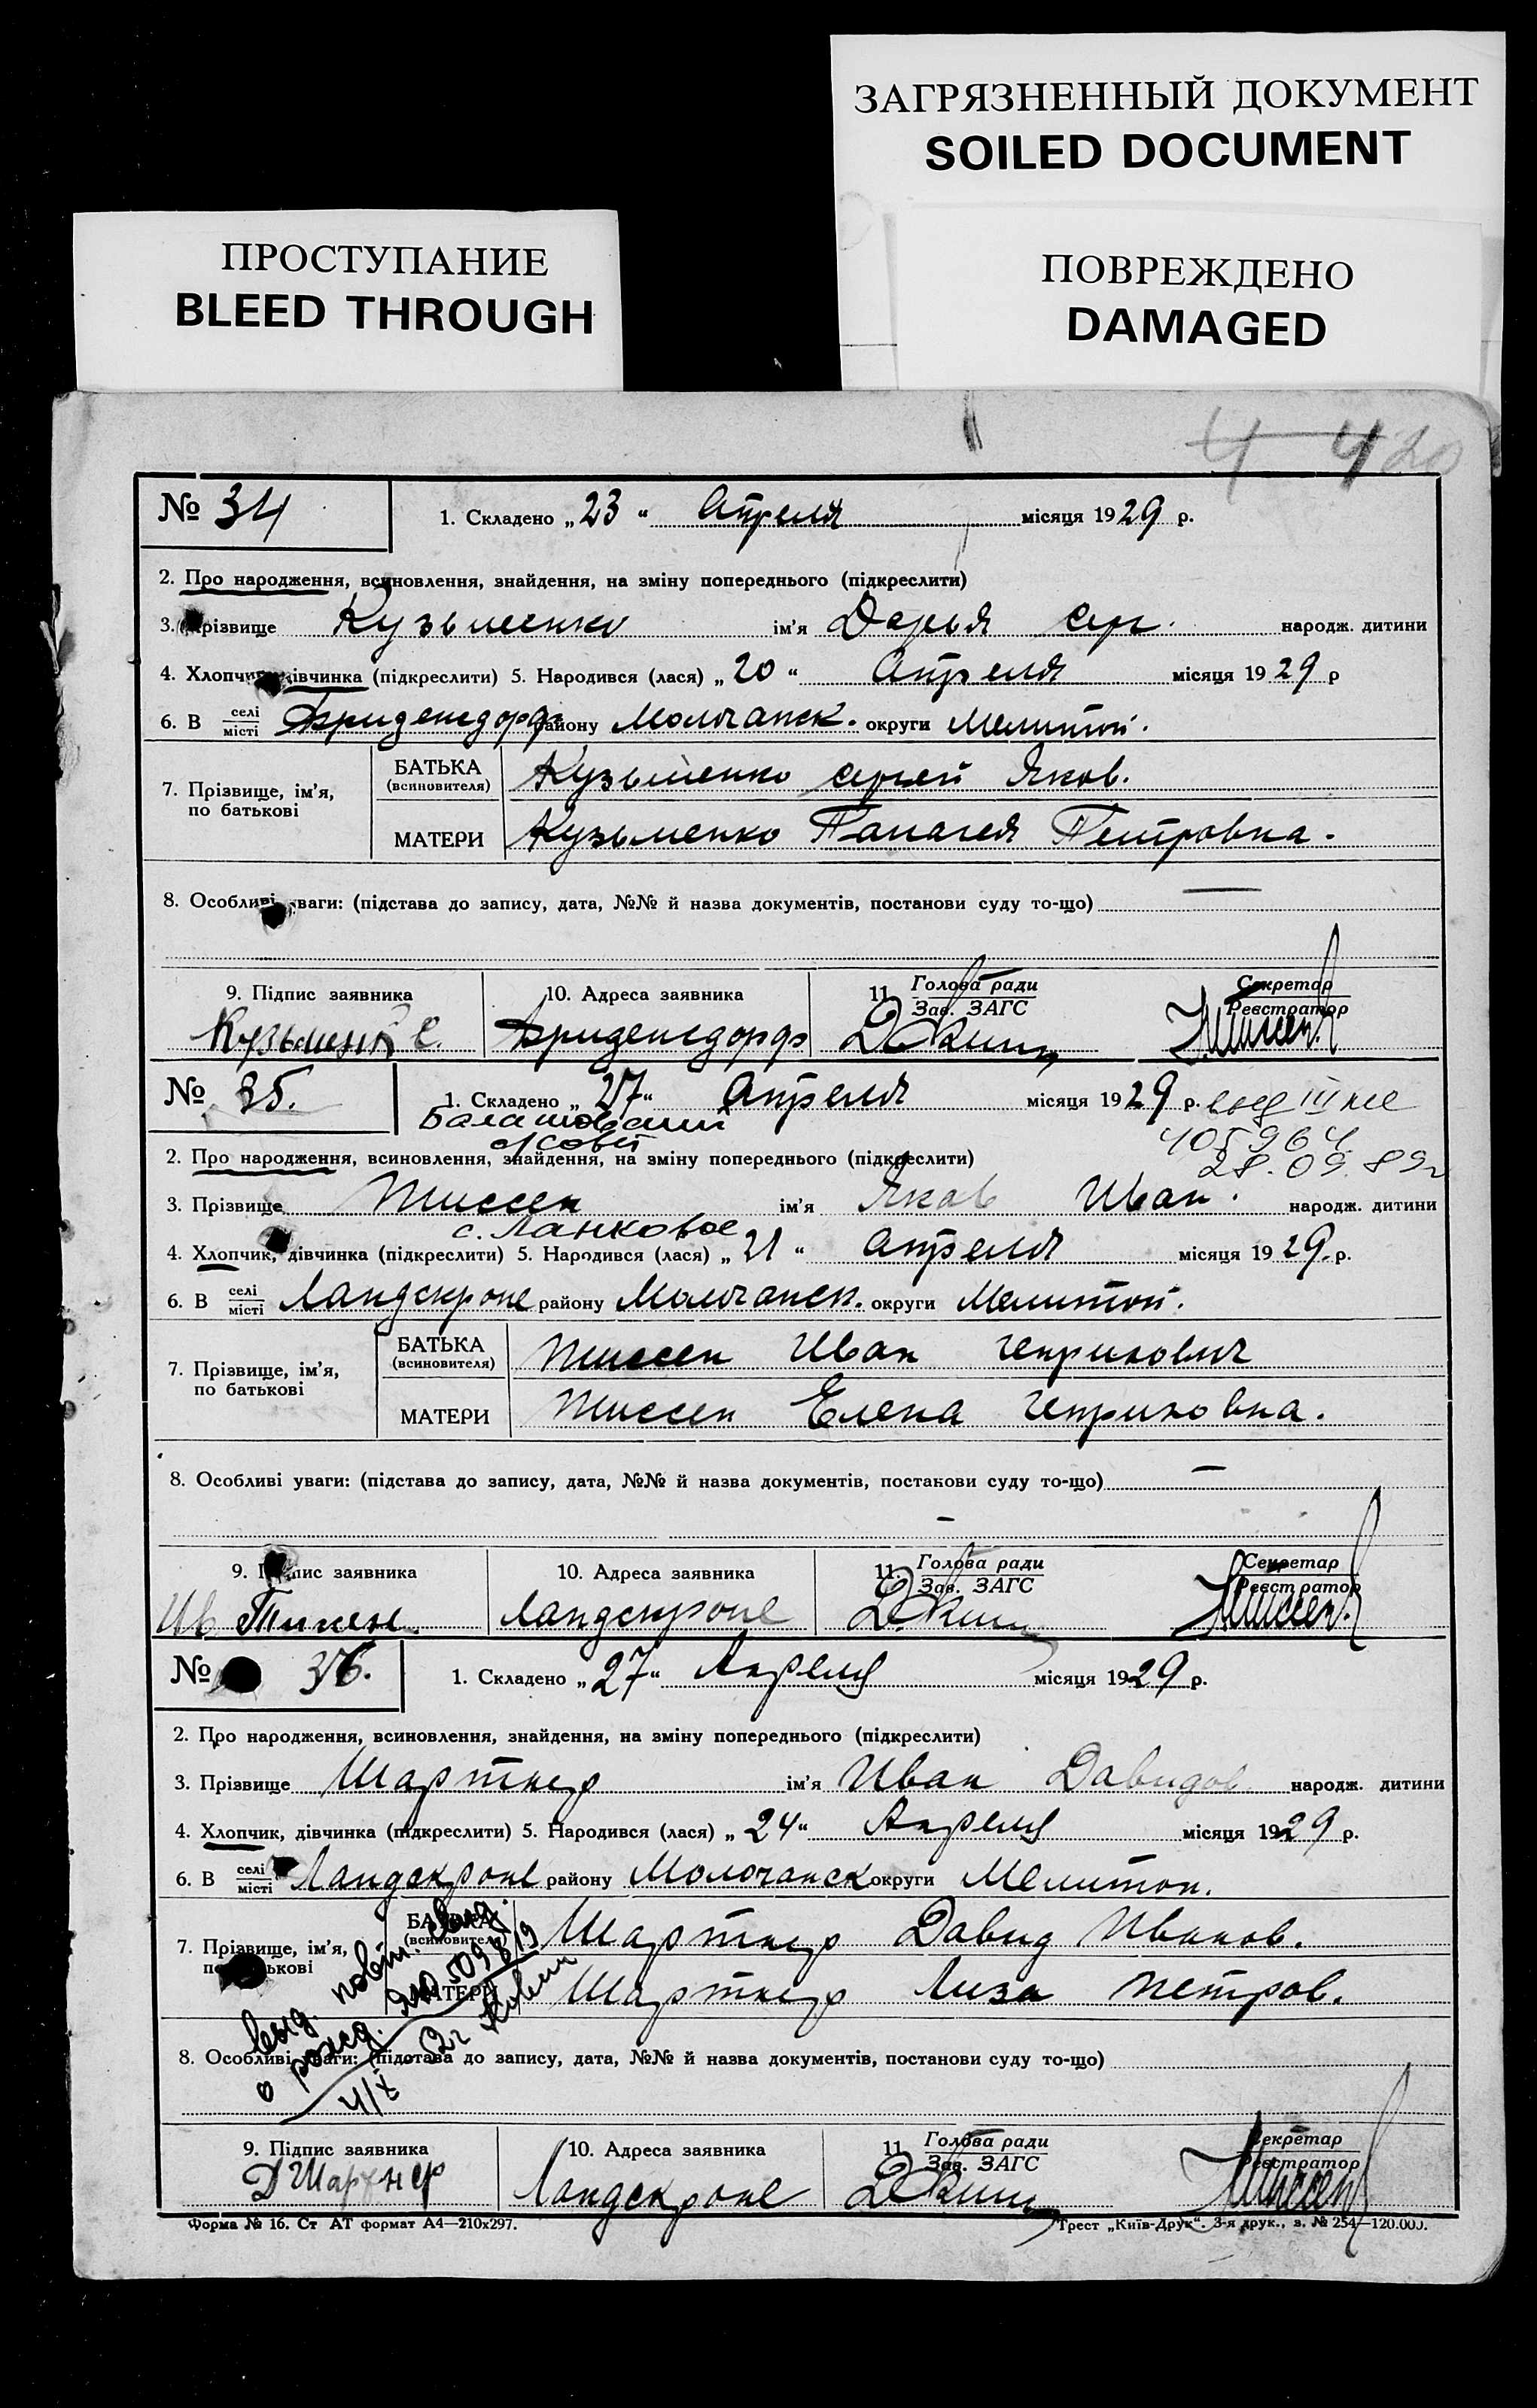 ЗАГРЯЗНЕННЫЙ ДОКУМЕНТ
SOILED DOCUMENT
ПРОСТУПАНИЕ
BLEED THROUGH
ПОВРЕЖДЕНО
DAMAGED
№ 34 1. Складено „23“ Апреля місяця 1929 р.
2. Про народження, всиновлення, знайдення, на зміну попереднього (підкреслити)
3. Прізвище Кузьменко ім'я Дарья Серг. народж. дитини
4. Хлопчик, дівчинка (підкреслити) 5. Народився (лася) „20“ Апреля місяця 1929 р
6. В селі місті Фриденсдорф району Молочанск. округи Мелитоп.
7. Прізвище, ім'я, по батькові
БАТЬКА (всиновителя) Кузьменко Сергей Яков.
МАТЕРИ Кузьменко Панагея Петровна.
8. Особливі уваги: (підстава до запису, дата, №№ й назва документів, постанови суду то-що) —
9. Підпис заявника 10. Адреса заявника 11. Голова ради Зав. ЗАГС Секретар Реєстратор
Кузьменк С. Фриденсдорф
№ 35. 1. Складено „27“ Апреля місяця 1929 р.
405964
28.09.89г
2. Про народження, всиновлення, знайдення, на зміну попереднього (підкреслити)
3. Прізвище Тиссен ім'я Яков Иван. народж. дитини
с. Ланковое
4. Хлопчик, дівчинка (підкреслити) 5. Народився (лася) „21“ Апреля місяця 1929. р.
6. В селі місті Ландскроне району Молочанск. округи Мелитоп.
7. Прізвище, ім'я, по батькові
БАТЬКА (всиновителя) Тиссен Иван Генрихович
МАТЕРИ Тиссен Елена Генриховна.
8. Особливі уваги: (підстава до запису, дата, №№ й назва документів, постанови суду то-що) —
9. Підпис заявника 10. Адреса заявника 11. Голова ради Зав. ЗАГС Секретар Реєстратор
Ив Тиссен Ландскроне Тиссен
№ 36. 1. Складено „27“ Апреля місяця 1929 р.
2. Про народження, всиновлення, знайдення, на зміну попереднього (підкреслити)
3. Прізвище Шартнер ім'я Иван Давидов народж. дитини
4. Хлопчик, дівчинка (підкреслити) 5. Народився (лася) „24“ Апреля місяця 1929 р.
6. В селі місті Ландскроне району Молочанск округи Мелитоп.
7. Прізвище, ім'я, по батькові
БАТЬКА (всиновителя) Шартнер Давид Иванов.
МАТЕРИ Шартнер Лиза Петров.
выд. повт. свид.
о рожд.
8. Особливі уваги: (підстава до запису, дата, №№ й назва документів, постанови суду то-що)
9. Підпис заявника 10. Адреса заявника 11. Голова ради Зав. ЗАГС Секретар Реєстратор
Д Шартнер Ландскроне Тиссен
Форма № 16. Ст АТ формат А4—210х297. Трест „Київ-Друк“. 3-я друк., з. № 254—120.000.